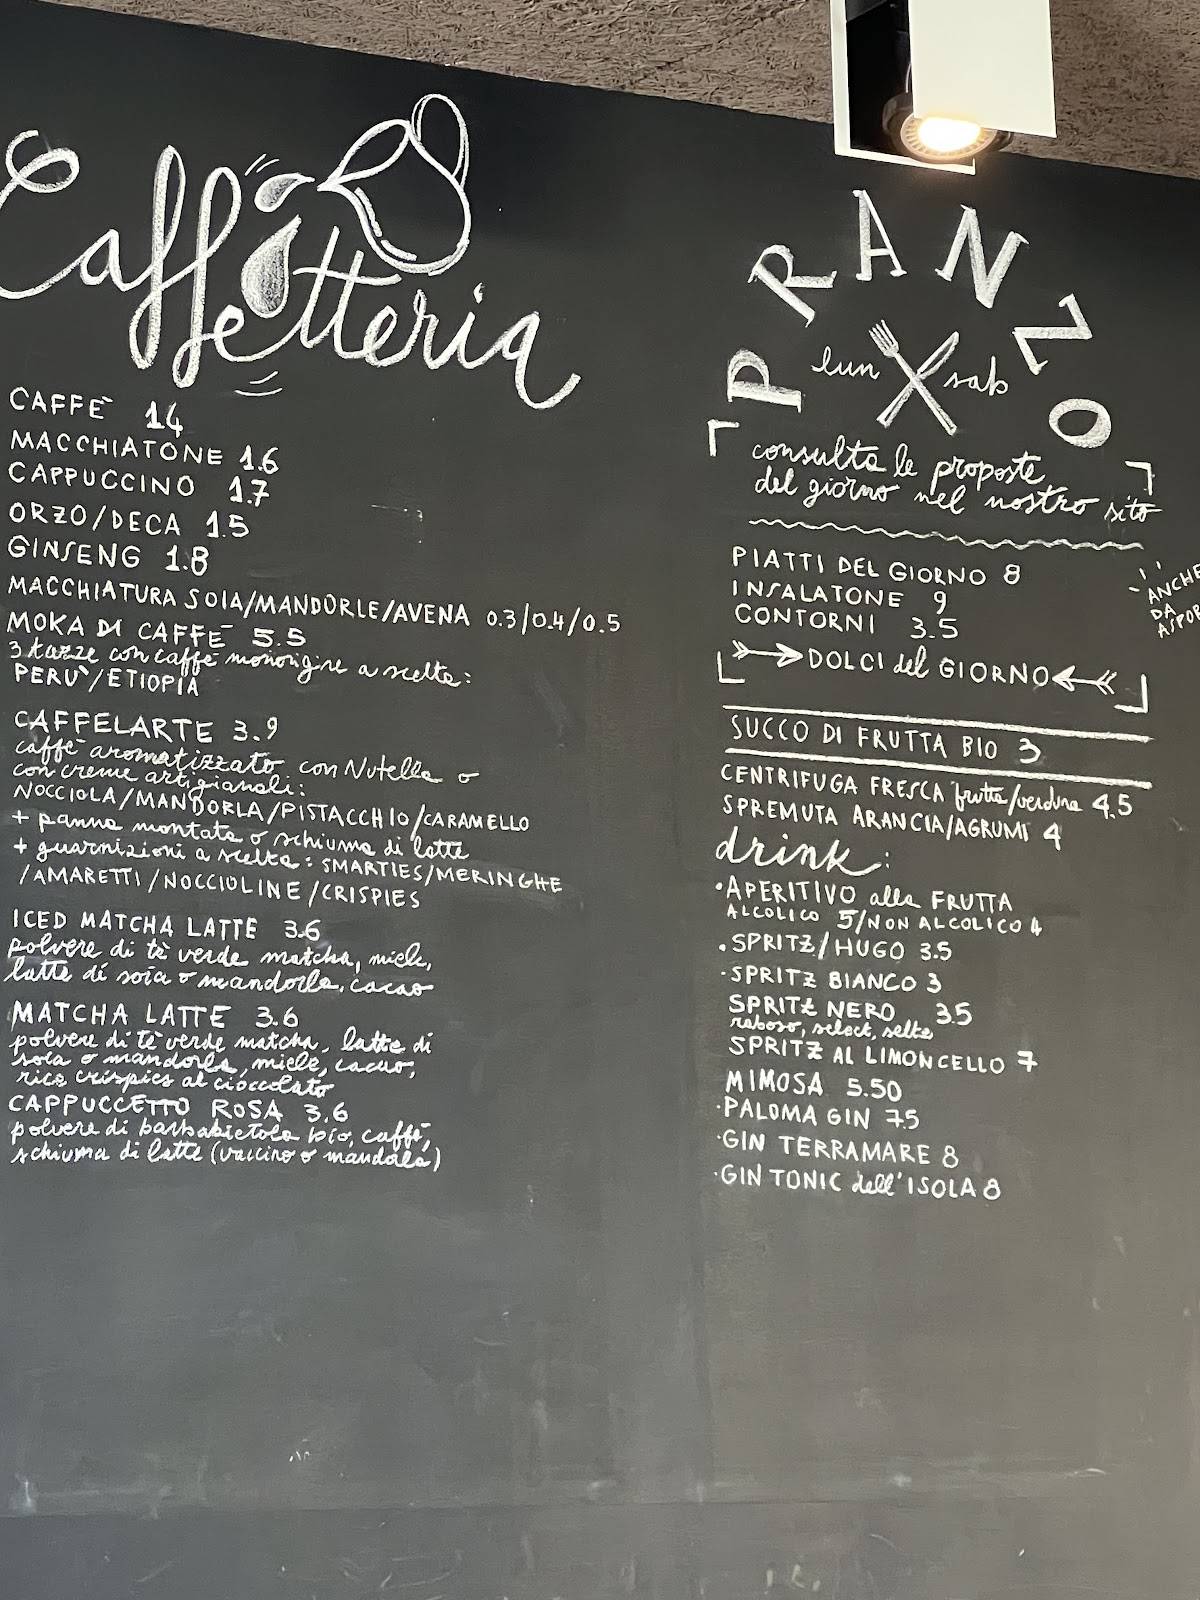 Caffetteria
CAFFÈ 1.4
MACCHIATONE 1.6
CAPPUCCINO 1.7
ORZO/DECA 1.5
GINSENG 1.8
MACCHIATURA SOIA/MANDORLE/AVENA 0.3/0.4/0.5
MOKA DI CAFFÈ 5.5
3 tazze con caffè monorigine a scelta:
PERÙ/ETIOPIA
CAFFELARTE 3.9
caffè aromatizzato con Nutella o
con creme artigianali:
NOCCIOLA/MANDORLA/PISTACCHIO/CARAMELLO
+ panna montata o schiuma di latte
+ guarnizioni a scelta: SMARTIES/MERINGHE
/AMARETTI/NOCCIOLINE/CRISPIES
ICED MATCHA LATTE 3.6
polvere di tè verde matcha, miele,
latte di soia o mandorla, cacao
MATCHA LATTE 3.6
polvere di tè verde matcha, latte di
soia o mandorla, miele, cacao,
rice crispies al cioccolato
CAPPUCCETTO ROSA 3.6
polvere di barbabietola bio, caffè,
schiuma di latte (vaccino o mandorla)
PRANZO
lun sab
consulta le proposte
del giorno nel nostro sito
PIATTI DEL GIORNO 8
INSALATONE 9
CONTORNI 3.5
ANCHE
DA
DOLCI del GIORNO
SUCCO DI FRUTTA BIO 3
CENTRIFUGA FRESCA frutta/verdura 4.5
SPREMUTA ARANCIA/AGRUMI 4
drink:
·APERITIVO alla FRUTTA
ALCOLICO 5/NON ALCOLICO 4
·SPRITZ/HUGO 3.5
·SPRITZ BIANCO 3
SPRITZ NERO 3.5
raboso, select, seltz
SPRITZ AL LIMONCELLO 7
MIMOSA 5.50
·PALOMA GIN 7.5
·GIN TERRAMARE 8
·GIN TONIC dell'ISOLA 8